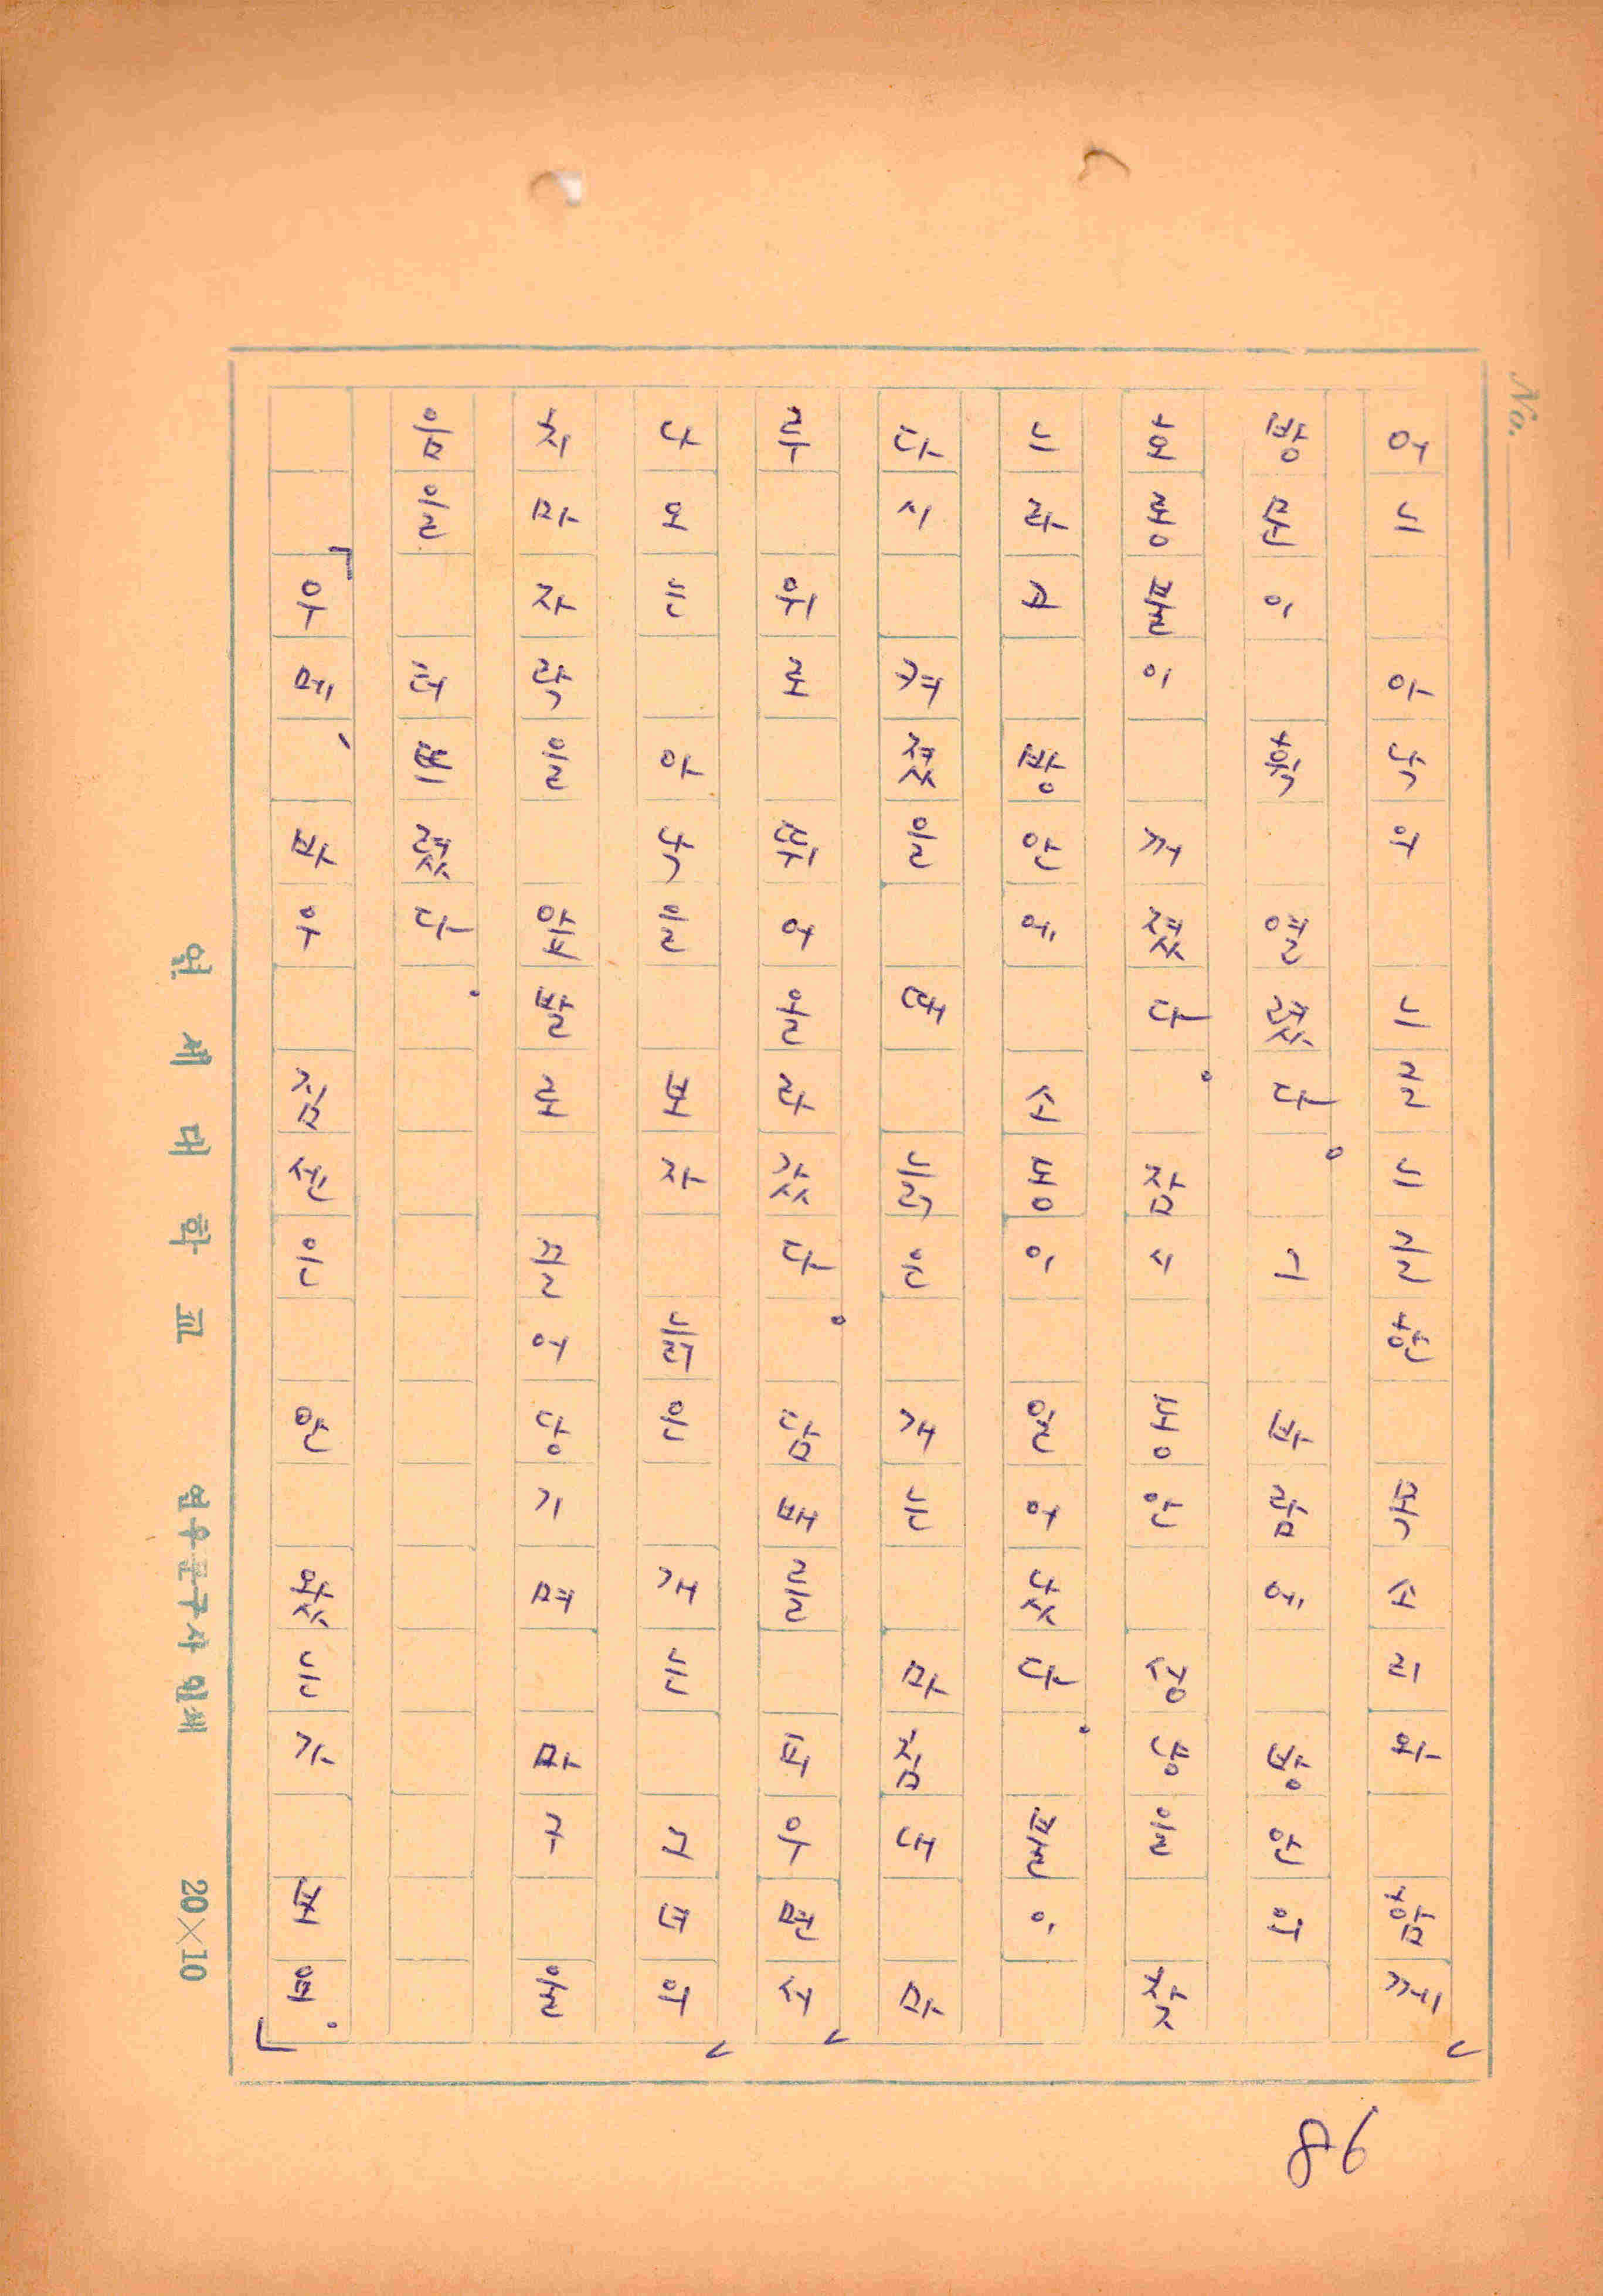 어느 아낙의 느글느글한 객소리와 함께
방문이 확 열렸다. 그 바람에 방안의
호롱불이 꺼졌다. 잠시 방안은 성냥을 찾
느라고 방안에 소동이 일어났다. 불이
다시 켜졌을 때 늙은 개는 마침내 마
루 위로 뛰어올라갔다. 담배를 피우면서
나오는 아낙을 보자 늙은 개는 그녀의
치마자락을 이빨로 끌어당기며 마구 울
음을 터뜨렸다.
「우메, 바우 은 안 왔는가
연세대학교 연우문구사 인쇄 20×10
No.